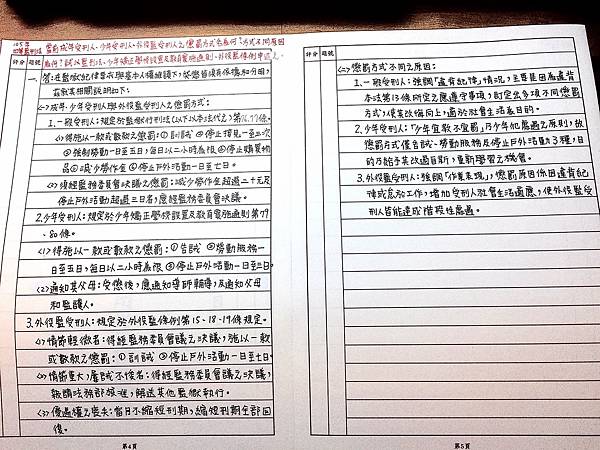 105年
四等監獄法 當前成年受刑人、少年受刑人、外役監受刑人之懲罰方式各為何?方式不同原因
為何?試以監刑法、少年矯正學校設置及教育實施通則、外役監條例申述之。
評分 題號
一、答:在監獄紀律要求與基本人權維護下,受懲皆須有依據和分明,
茲就其相關說明如下:
<一>成年、少年受刑人與外役監受刑人之懲罰方式:
1.一般受刑人:規定於監獄行刑法(以下以本法代之)第76.77條。
<1>得施以一款或數款之懲罰:①訓誡 ②停止接見一至三次
③強制勞動一至五日,每日以二小時為限 ④停止購買物
品⑤減少勞作金 ⑥停止戶外活動一日至七日。
<2>須經監務委員會決議之懲罰:減少勞作金超過二十元及
停止戶外活動超過三日者,應經監務委員會決議。
2.少年受刑人:規定於少年矯正學校設置及教育實施通則第79
、80條。
<1>得施以一款或數款之懲罰:①告誡 ②勞動服務一
日至五日,每日以二小時為限 ③停止戶外活動一日至三日。
<2>通知其父母:受懲後,應通知導師輔導,及通知父母
和監護人。
3.外役監受刑人:規定於外役監條例第15、18、19條規定。
<1>情節輕微者:得經監務委員會議之決議,施以一款
或數款之懲罰:①訓誡 ②停止戶外活動一日至七日
<2>情節重大,屢誡不悛者:得經監務委員會議之決議,
報請法務部核准,解送其他監獄執行。
<3>優遇權之喪失:當月不縮短刑期,縮短刑期全部回
復。
第4頁
評分 題號
<二>懲罰方式不同之原因:
1.一般受刑人:強調「違背紀律」情況,主要是因為違背
本法第13條所定之應遵守事項,訂定出多項不同懲罰
方式,使其改悔向上,適於社會生活為目的。
2.少年受刑人:「少年宜教不宜罰」,乃少年犯處遇之原則,故
懲罰方式僅告誡、勞動服務及停止戶外活動3種,目
的乃給予其改過自新,重新學習之機會。
3.外役監受刑人:強調「作業表現」,懲罰原因係因違背紀
律或怠於工作,增加受刑人社會生活適應,使外役監受
刑人皆能達成階段性處遇。
第5頁